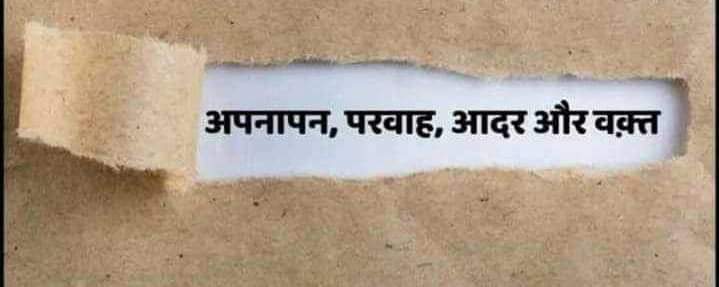 अपनापन, परवाह, आदर और वक़्त